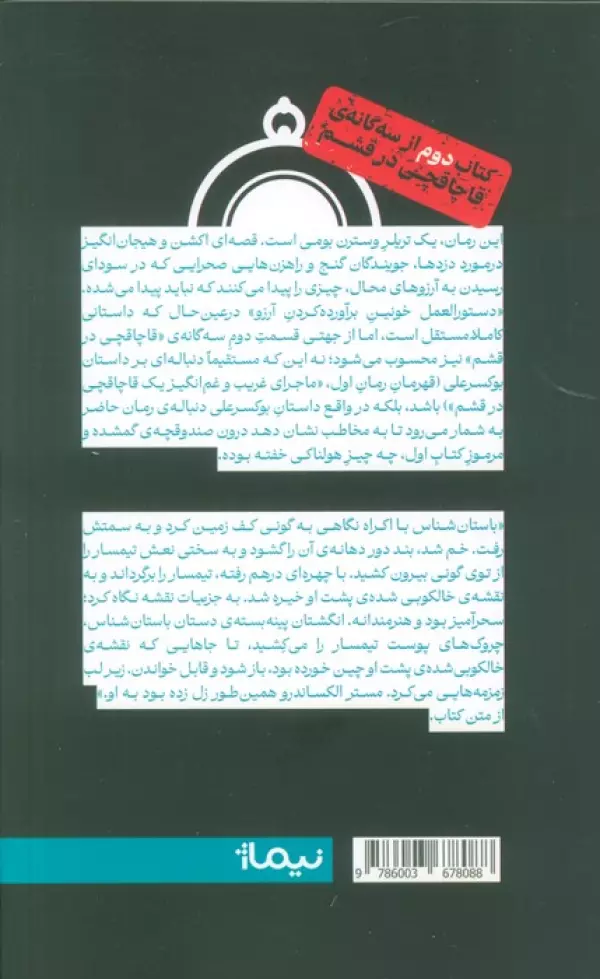 کتاب دوم از سه‌گانه‌ی
قاچاقچی در قشم
این رمان، یک تریلرِ وسترن بومی است. قصه‌ای اکشن و هیجان‌انگیز
درمورد دزدها، جویندگان گنج و راهزن‌هایی صحرایی که در سودای
رسیدن به آرزوهای محال، چیزی را پیدا می‌کنند که نباید پیدا می‌شده.
«دستورالعمل خونینِ برآورده‌کردنِ آرزو» درعین‌حال که داستانی
کاملا مستقل است، اما از جهتی قسمتِ دومِ سه‌گانه‌ی «قاچاقچی در
قشم» نیز محسوب می‌شود؛ نه این که مستقیماً دنباله‌ای بر داستان
بوکسرعلی (قهرمانِ رمانِ اول، «ماجرای غریب و غم‌انگیز یک قاچاقچی
در قشم») باشد، بلکه در واقع داستانِ بوکسرعلی دنباله‌ی رمان حاضر
به شمار می‌رود تا به مخاطب نشان دهد درون صندوقچه‌ی گمشده و
مرموزِ کتابِ اول، چه چیزِ هولناکی خفته بوده.
«باستان‌شناس با اکراه نگاهی به گونی کف زمین کرد و به سمتش
رفت. خم شد، بند دور دهانه‌ی آن را گشود و به سختی نعش تیمسار را
از توی گونی بیرون کشید. با چهره‌ای درهم رفته، تیمسار را برگرداند و به
نقشه‌ی خالکوبی شده‌ی پشت او خیره شد. به جزییات نقشه نگاه کرد؛
سحرآمیز بود و هنرمندانه. انگشتان پینه‌بسته‌ی دستان باستان‌شناس،
چروک‌های پوست تیمسار را می‌کشید، تا جاهایی که نقشه‌ی
خالکوبی‌شده‌ی پشت او چین خورده بود، باز شود و قابل خواندن. زیر لب
زمزمه‌هایی می‌کرد. مستر الکساندرو همین‌طور زل زده بود به او.»
از متن کتاب.
نیماژ
9 786003 678088